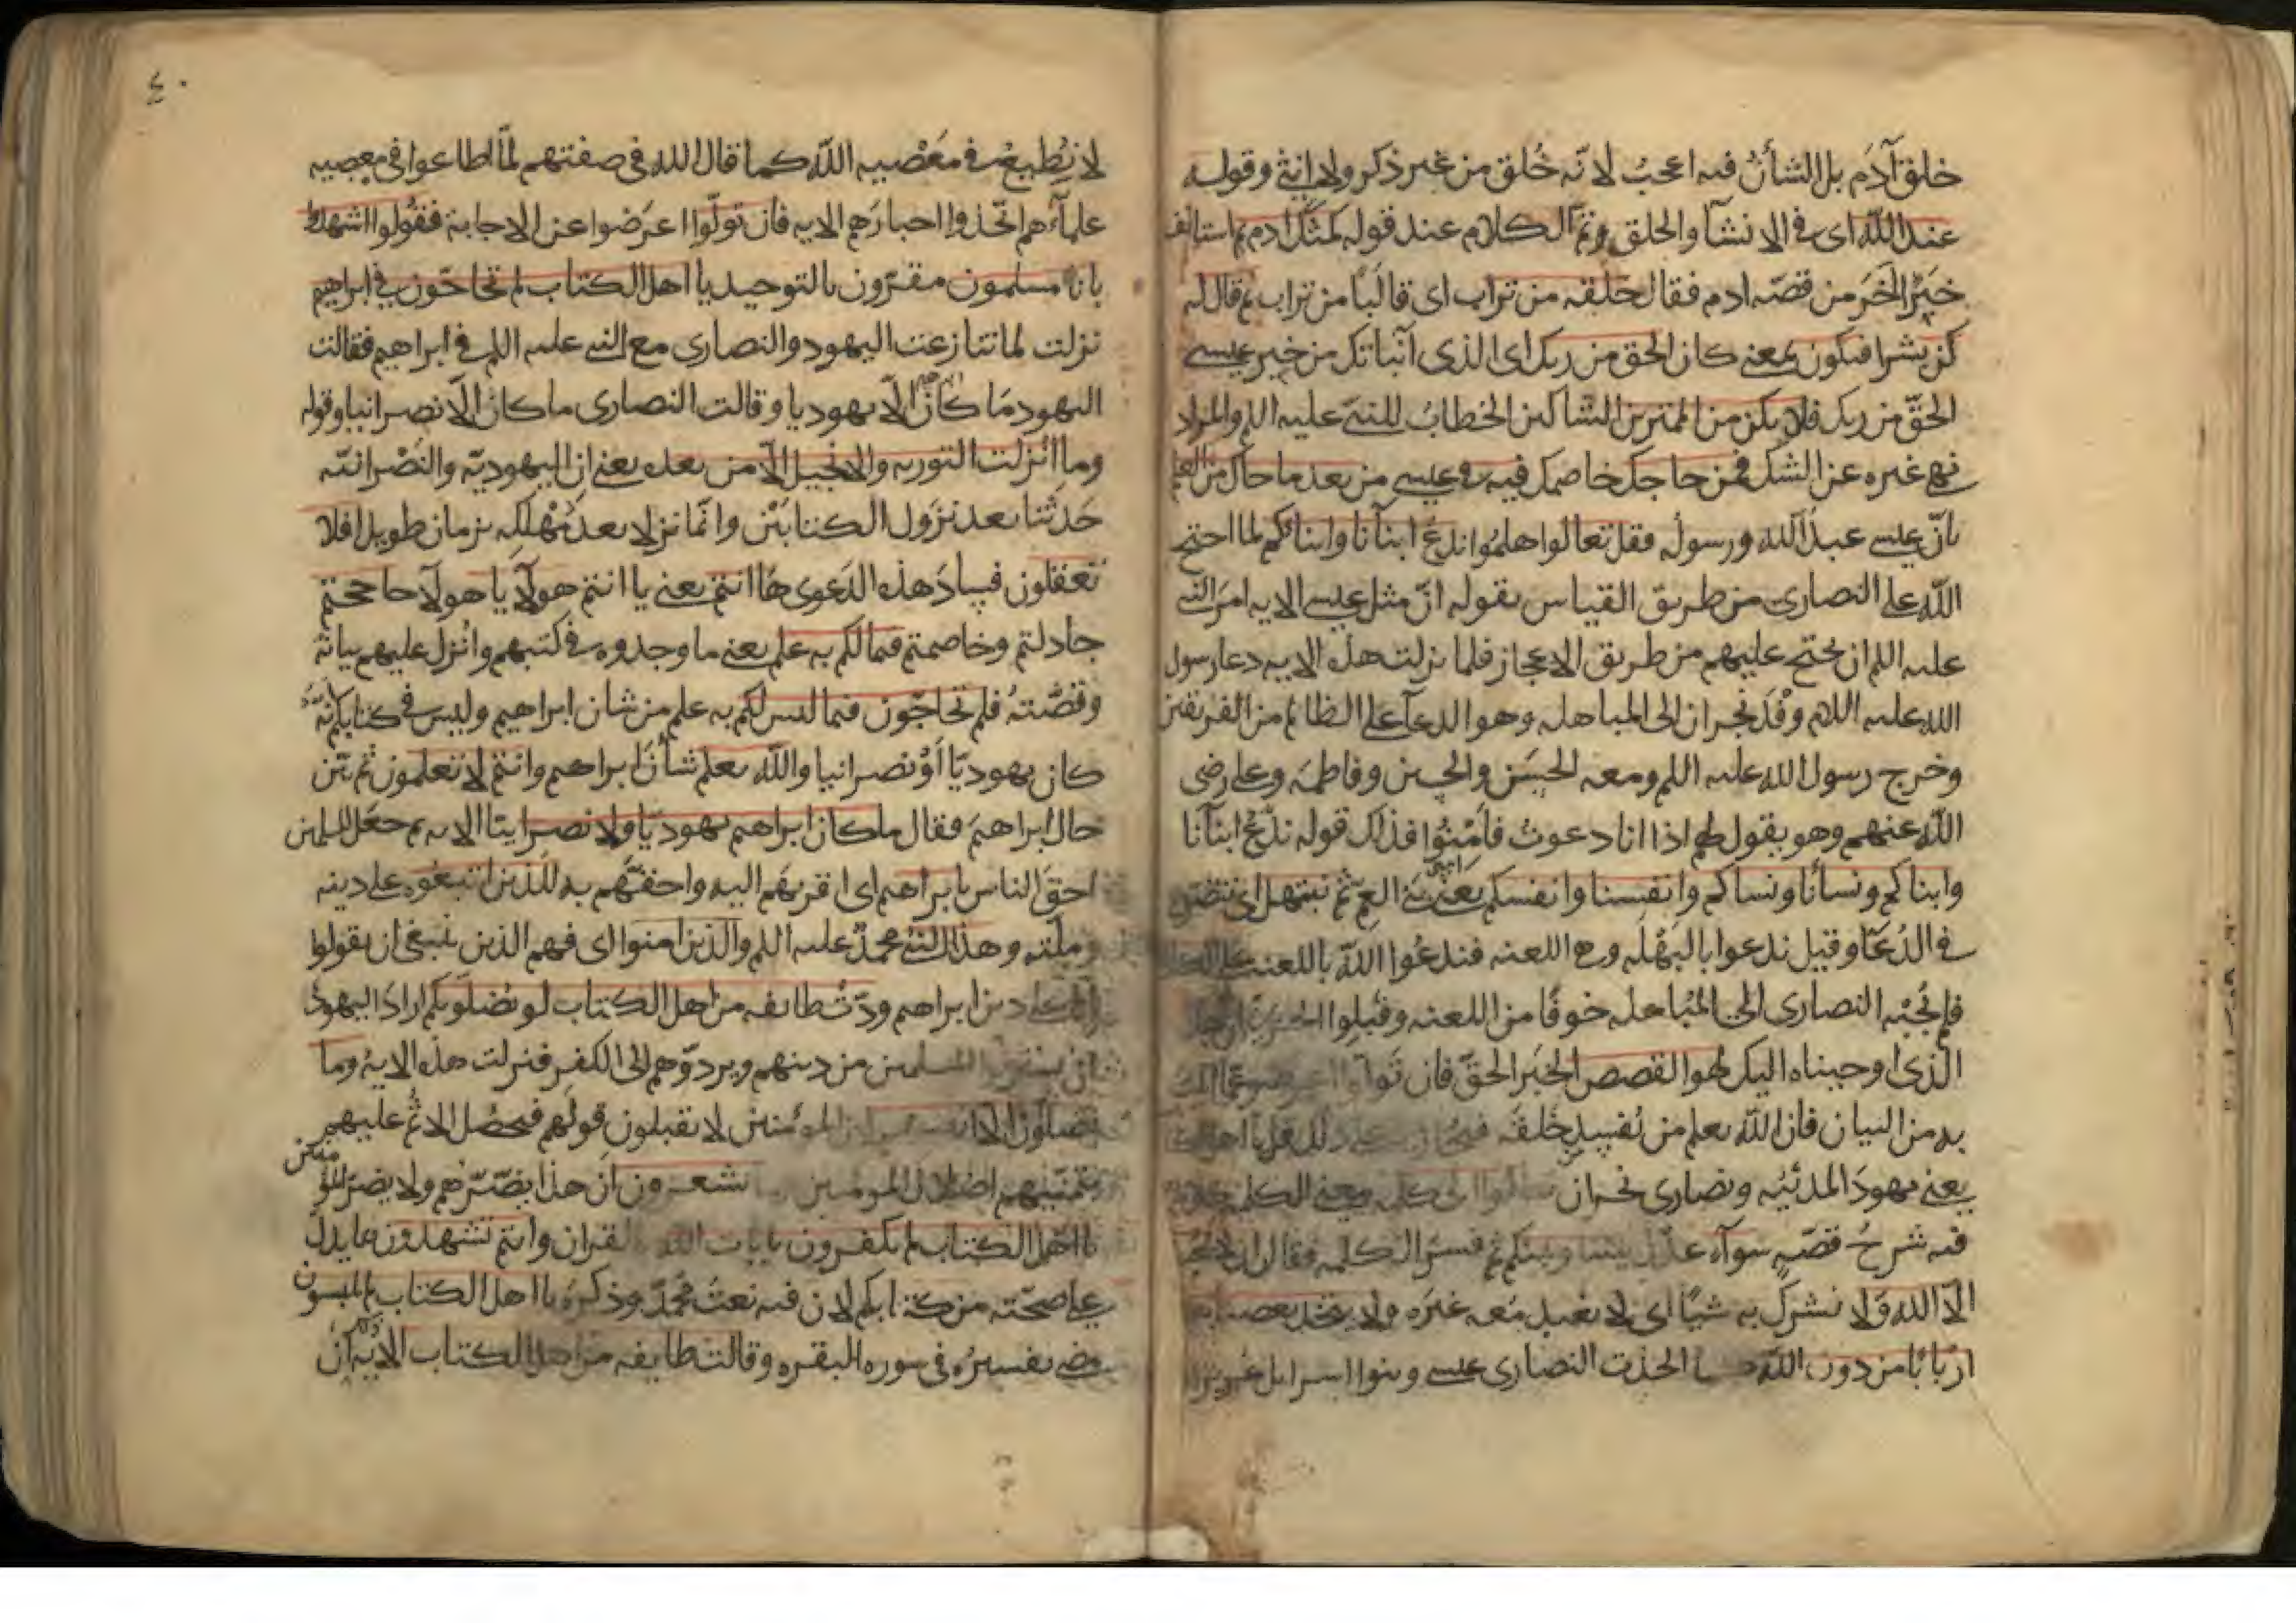 خلق آدَم بل الشأنُ فيه اعجبُ لانّه خُلق من غير ذكر ولا انثى وقوله
عند اللّه اى فى الانشآ والخلق وتمّ الكلام عند قوله كمثل ادم ثم استانف
خبرًا اخَرَ من قصّه ادم فقال خلقه من تراب اى قالَبًا من تراب ثم قال له
كن بشرا فيكون بمعنى كان الحق من ربك اى الذى انباتك من خبر عيسى
الحقّ من ربك فلا يكن من الممترين الشاكين الخطابُ للنبىّ عليه اللم والمراد
نهى غيره عن الشك فمن حاجك خاصمك فيه فى عيسى من بعد ما جاك من العلم
بانّ عيسى عبدُ اللّه ورسولُه فقل تعالوا هلمُوا ندعُ ابنآنا وابناكم لما احتج
اللّه على النصارى من طريق القياس بقوله انّ مثل عيسى الايه امرَ النبى
عليه اللم ان يحتج عليهم من طريق الاعجاز فلما نزلت هذه الايه دعا رسول
الله عليه اللام وفْدَ نجران الى المباهله وهو الدعآ على الظالم من الفريقين
وخرج رسول الله عليه اللم ومعه الحسَن والحسين وفاطمَه وعلى رضى
اللّه عنهم وهو يقول لهم اذا انا دعوت فاَمّنُوا فذلك قوله ندْعُ ابنآنا
وابناكم ونسآنا ونساكم وانفسنا وانفسكم يعنى بنى العمّ ثم نبتهل اى نتضرع
فى الدُعآ وقيل ندعوا بالبَهْلَه وهى اللعنه فندعُوا اللّه باللعنه على
فلم تُجبْه النصارى الى المُباهله خوفًا من اللعنه وقَبلِوا
الذى اوحيناه اليك لهو القصص الخبَر الحقّ فان تَولّوا
به من البيان فان اللّه يعلم من يُفسِد خَلقَه
يعنى يهودَ المدينَه ونصارى نجران
فيه شرحُ قصّه سوآء عدل بيننا وبينكم ثم فسّر الكلمه فقال ان لا نعبد
الّا اللّه ولا نشرك به شيًا اى لا نعبد مَعه غيرَه ولا يتخذ بعضنا
اربابًا من دون اللّه كما اتخذت النصارى عيسى وبنوا اسرايل عُزيرا
٤٠
لا نُطيعُ فى مَعْصيه اللّه كما قال الله فى صفتهم لمّا اطاعوا فى معصيه
علمآءهم اتّخذوا احبارَهم الايه فان تولّوا اعرَضوا عن الاجابة فقُولوا اشهدوا
بانّا مسلمون مقرّون بالتوحيد يا اهل الكتاب لم تحاجّون فى ابراهيم
نزلت لما تنازعت اليهود والنصارى مع النبى عليه اللم فى ابراهيم فقالت
اليهود مَا كانَ الّا يهوديا وقالت النصارى ما كان الّا نصرانيا وقوله
وما انزلت التوريه والانجيل الّا من بعده يعنى ان اليهوديّه والنَصْرانيّه
حَدَثتا بعد نزول الكتابَيْن وانّما نزلا بعد مَهْلِكِه بزمان طويل افلا
تعقلون فسادَ هذه الدَعوى هَا انتم يعنى يا انتم هولآ يا هولآ حاججتم
جادلتم وخاصمتم فيما لكم به علم يعنى ما وجدوه فى كتبهم وانُزل عليهم بيانُه
وقصّتهُ فلم تحاجّون فيما ليس لكم به علم من شان ابراهيم وليس فى كتابكم انّهُ
كان يهوديّا اَوْ نصرانيا واللّه يعلم شأنَ ابراهيم وانتم لا تعلمون ثم بيّن
حال ابراهيمَ فقال ما كان ابراهيم يهوديّا ولا نصرانيّا الايه ثم جعَل المسلمين
احقّ الناس بابراهيم اى اقربهَم اليه واحقَّهم به للّذين اتّبعُوه على دينه
وملّته وهذا النبىُ محمدٌ عليه اللم والذين امنوا اى فهم الذين ينبغى ان يقولوا
انّا على دين ابراهيم ودّت طائفه من اهل الكتاب لو يُضلّونكم ارادَ اليهودُ
ان المسلمين من دينهم ويردّوهم الى الكفر فنزلت هذه الايه وما
يضلّون الّا انفسهم لان المؤمنين لا يقبلون قولَهم فيحصُل الاثمُ عليهم
بتمنّيهم اضلال المومنين وما يشعرون ان هذا يضّرّهم ولا يضرّ المؤمنين
يا اهل الكتاب لم تكفرون بايات اللّه بالقران وانتم تشهدون بما يدلّ
على صحّته من كتابكم لان فيه نعتَ محمّد وذكرَه يا اهل الكتاب لم تلبسون
مضى تفسيرُه فى سوره البقره وقالت طايفه من اهل الكتاب الايه ان